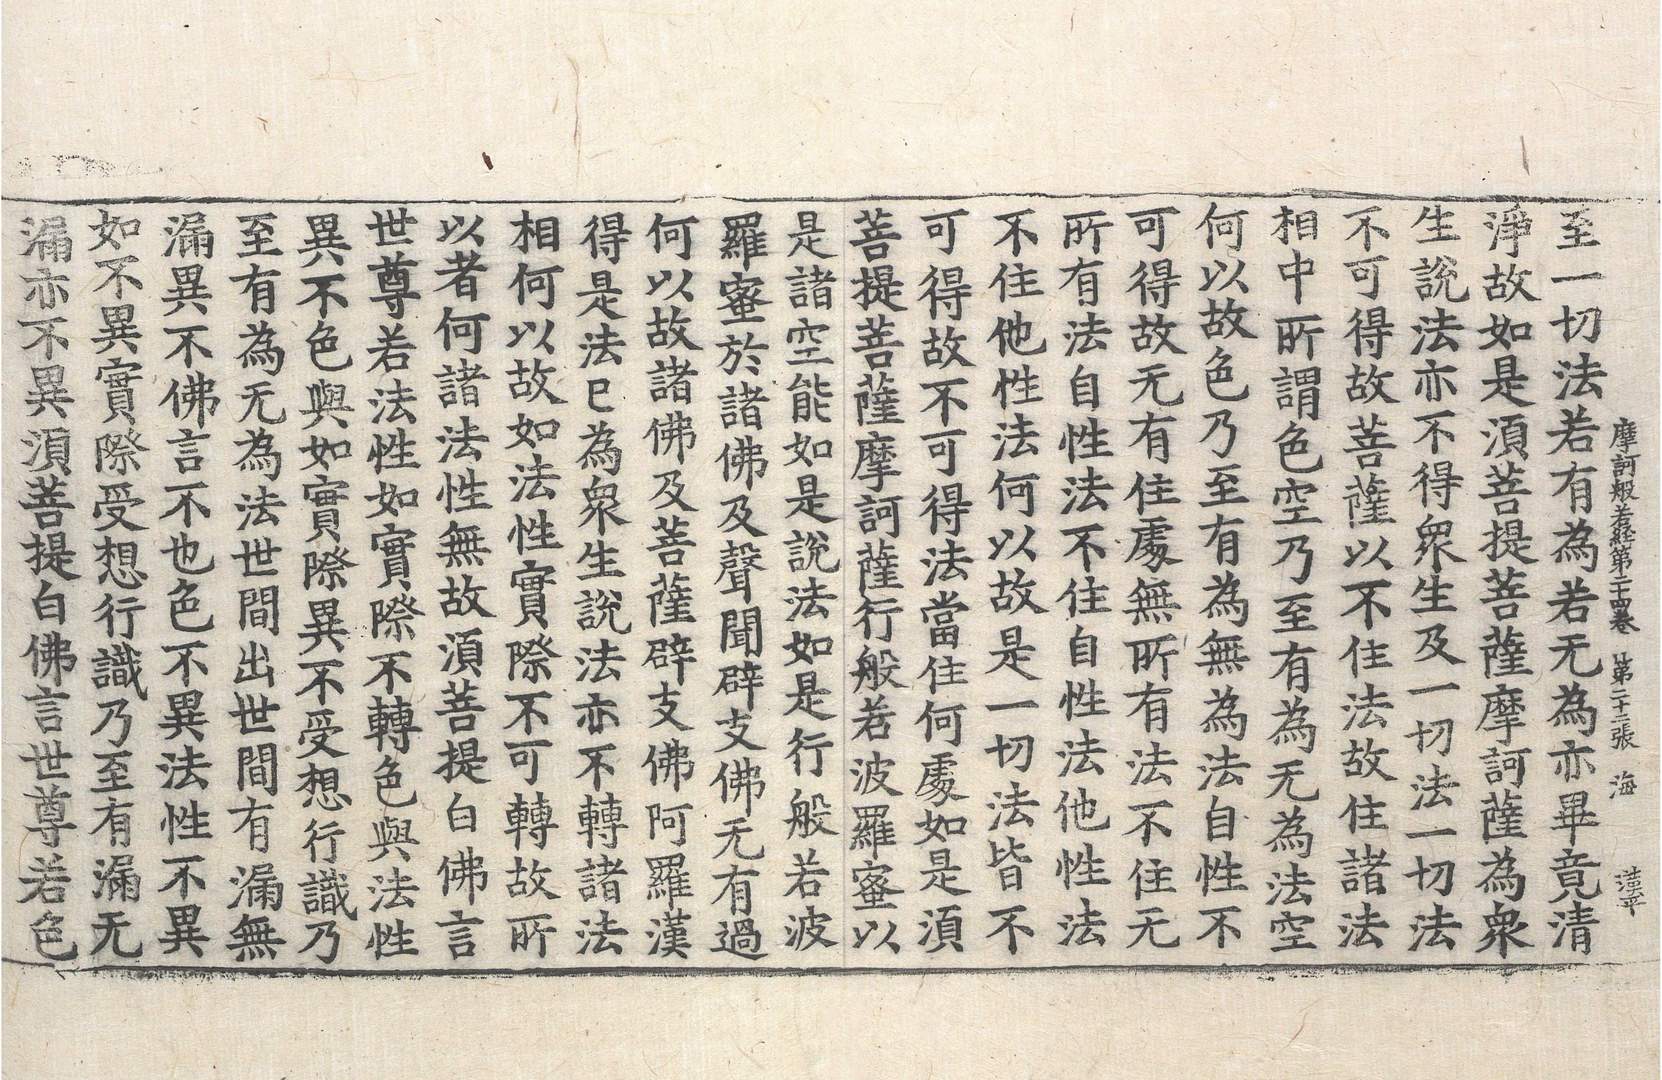 摩訶般若經第二十四卷 第二十二張 海 漢平
至一切法若有為若无為亦畢竟清
淨故如是湏菩提菩薩摩訶薩為衆
生說法亦不得衆生及一切法一切法
不可得故菩薩以不住法故住諸法
相中所謂色空乃至有為无為法空
何以故色乃至有為無為法自性不
可得故无有住處無所有法不住无
所有法自性法不住自性法他性法
不住他性法何以故是一切法皆不
可得故不可得法當住何處如是湏
菩提菩薩摩訶薩行般若波羅蜜以
是諸空能如是說法如是行般若波
羅蜜於諸佛及聲聞辟支佛无有過
何以故諸佛及菩薩辟支佛阿羅漢
得是法已為衆生說法亦不轉諸法
相何以故如法性實際不可轉故所
以者何諸法性無故湏菩提白佛言
世尊若法性如實際不轉色與法性
異不色與如實際異不受想行識乃
至有為无為法世間出世間有漏無
漏異不佛言不也色不異法性不異
如不異實際受想行識乃至有漏无
漏亦不異湏菩提白佛言世尊若色